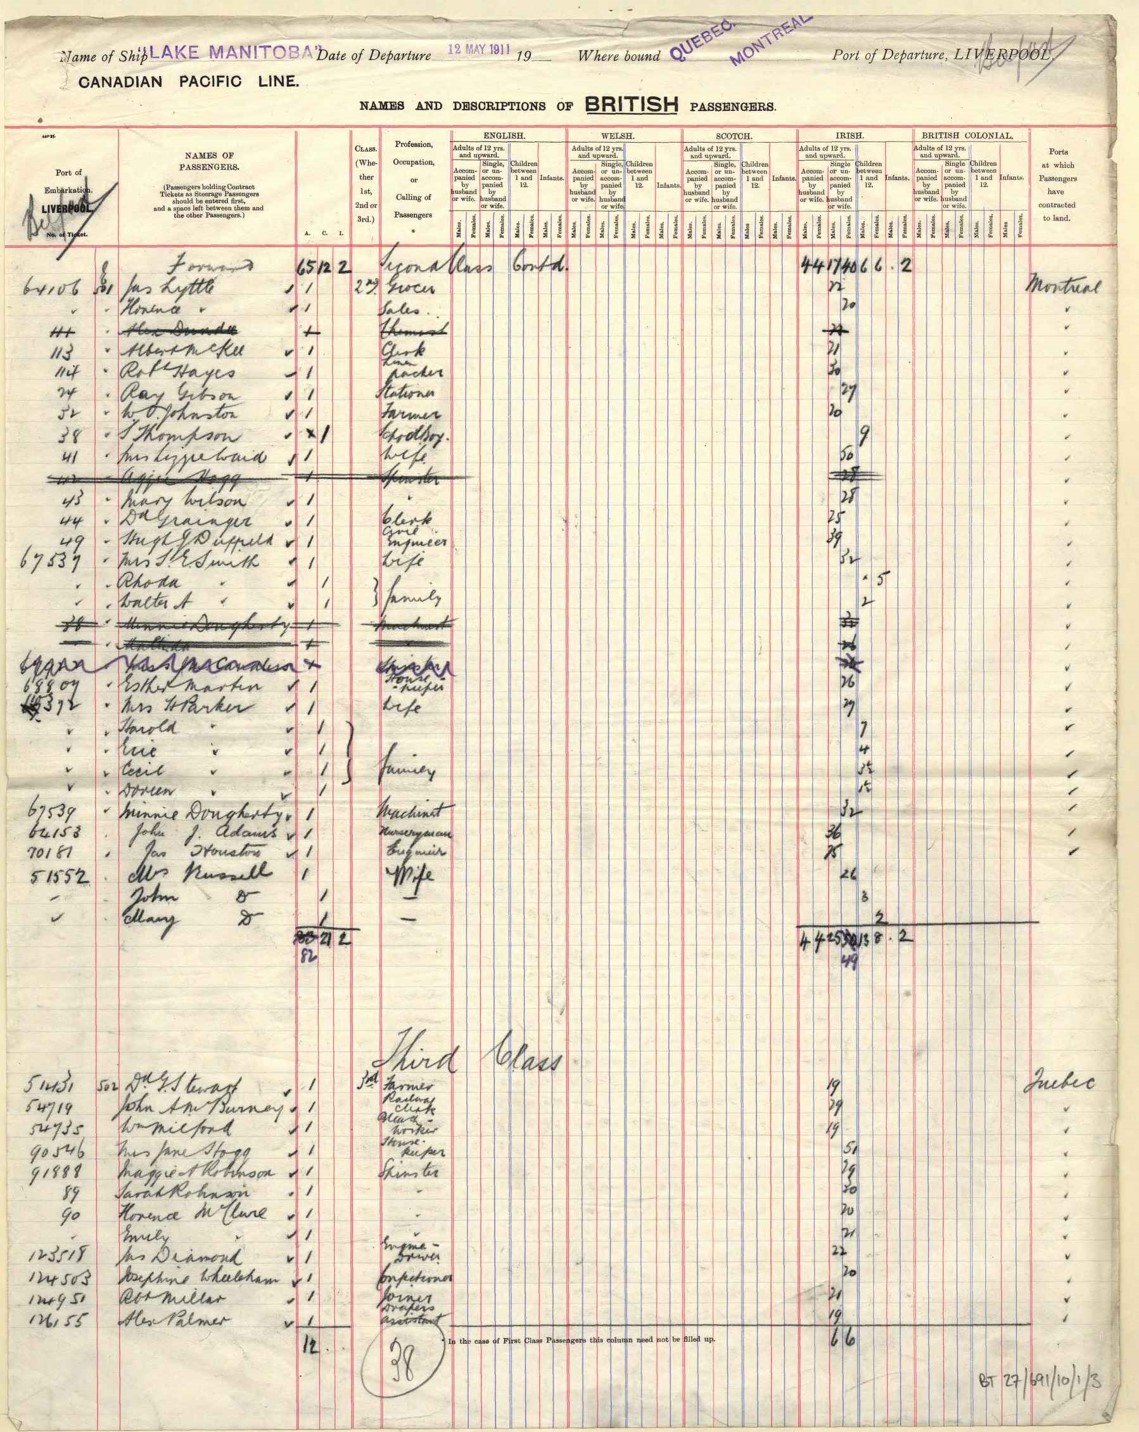 Name of Ship "LAKE MANITOBA" Date of Departure 12 MAY 1911 19 Where bound QUEBEC. MONTREAL Port of Departure, LIVERPOOL. Belfast
CANADIAN PACIFIC LINE.
NAMES AND DESCRIPTIONS OF BRITISH PASSENGERS.
Port of Embarkation. LIVERPOOL. Belfast No. of Ticket.
NAMES OF PASSENGERS.
(Passengers holding Contract Tickets as Steerage Passengers should be entered first, and a space left between them and the other Passengers.)
A. C. I.
CLASS. (Whether 1st, 2nd or 3rd.)
Profession, Occupation, or Calling of Passengers *
ENGLISH. WELSH. SCOTCH. IRISH. BRITISH COLONIAL.
Adults of 12 yrs. and upward. Accompanied by husband or wife. Single, or unaccompanied by husband or wife. Children between 1 and 12. Infants. Males. Females.
Ports at which Passengers have contracted to land.
Forward 65 12 2 Second Class Contd. 4 4 17 40 6 6 . 2
64106 501 Jas Lyttle 1 2nd Grocer 22 Montreal
Florence " 1 Sales 20
111 Alex Dundee 1 Chemist
113 Albert McKee 1 Clerk 21
114 Robt Hayes 1 Linen packer 30
24 Ray Gibson 1 Stationer 27
32 W J Johnston 1 Farmer 20
38 S Thompson 1 Schoolboy. 9
41 Mrs Lizzie Waid 1 Wife 50
42 Aggie Hogg 1 Spinster 28
43 Mary Wilson 1 " 28
44 Dd Grainger 1 Clerk 25
49 Hugh G Duffield 1 Civil Engineer 39
67537 Mrs S. E Smith 1 Wife 32
Rhoda " 1 family 5
Walter A " 1 2
38 Minnie Dougherty 1 Machinist
Matilda 1
68809 Esther Martin 1 House keeper 26
372 Mrs H Parker 1 Wife 29
Harold " 1 7
Eric " 1 4
Cecil " 1 family
Doreen " 1
67539 Minnie Dougherty 1 Machinist 32
64153 John J. Adams 1 Nurseryman 36
70181 Jas Houston 1 Engineer 25
51552 Mrs Russell 1 Wife 26
John D 1 — 3
Mary D 1 — 2
83 21 2 4 4 25 50 13 8 . 2
82 49
Third Class
51431 502 Dd G. Stewart 1 3rd Farmer 19 Quebec
54719 John A McBurney 1 Railway Clerk 29
54735 Wm Milford 1 worker 19
90546 Mrs Jane Hogg 1 House-keeper 51
91888 Maggie A Robinson 1 Spinster 29
89 Sarah Robinson 1 " 20
90 Florence McClure 1 " 20
Emily " 1 21
123518 Jas Diamond 1 Engine-Driver 22
124503 Josephine Wheelsham 1 Confectioner 20
124951 Robt Millar 1 Joiner 21
126155 Alex Palmer 1 Drapers assistant 19
12 6 6
* In the case of First Class Passengers this column need not be filled up.
38
BT 27/691/10/1/3